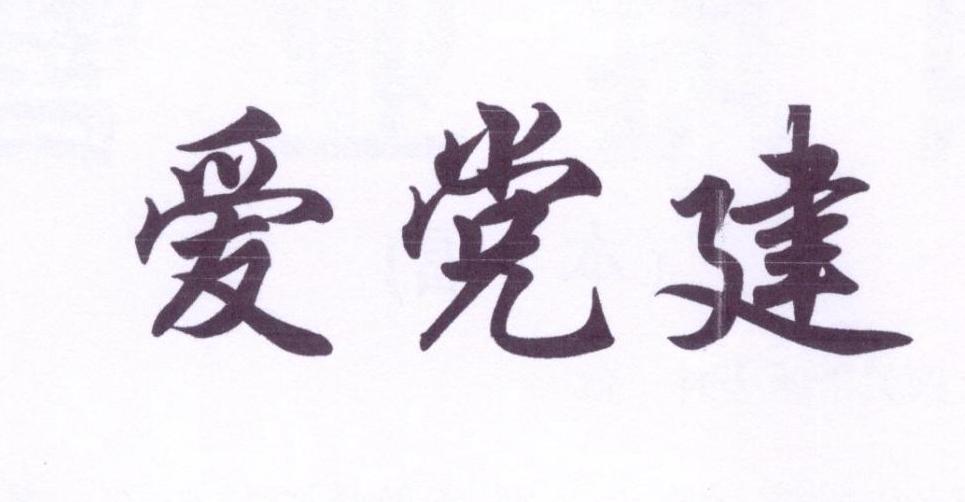 爱党建